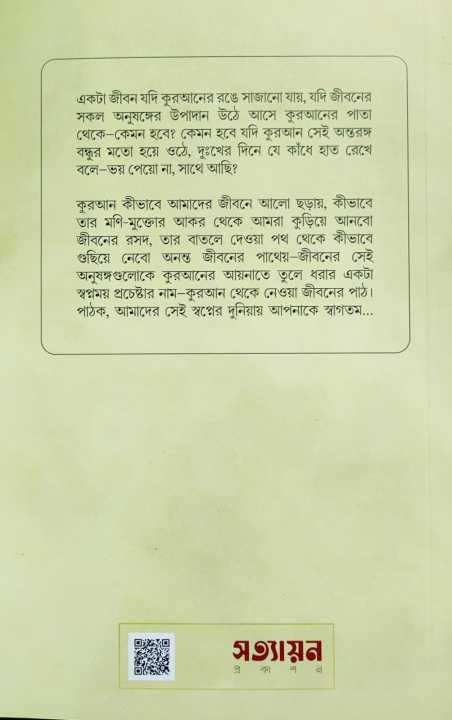 একটা জীবন যদি কুরআনের রঙে সাজানো যায়, যদি জীবনের
সকল অনুষঙ্গের উপাদান উঠে আসে কুরআনের পাতা
থেকে–কেমন হবে? কেমন হবে যদি কুরআন সেই অন্তরঙ্গ
বন্ধুর মতো হয়ে ওঠে, দুঃখের দিনে যে কাঁধে হাত রেখে
বলে–ভয় পেয়ো না, সাথে আছি?
কুরআন কীভাবে আমাদের জীবনে আলো ছড়ায়, কীভাবে
তার মণি-মুক্তোর আকর থেকে আমরা কুড়িয়ে আনবো
জীবনের রসদ, তার বাতলে দেওয়া পথ থেকে কীভাবে
গুছিয়ে নেবো অনন্ত জীবনের পাথেয়–জীবনের সেই
অনুষঙ্গগুলোকে কুরআনের আয়নাতে তুলে ধরার একটা
স্বপ্নময় প্রচেষ্টার নাম–কুরআন থেকে নেওয়া জীবনের পাঠ।
পাঠক, আমাদের সেই স্বপ্নের দুনিয়ায় আপনাকে স্বাগতম...
সত্যায়ন
প্র কা শ ন